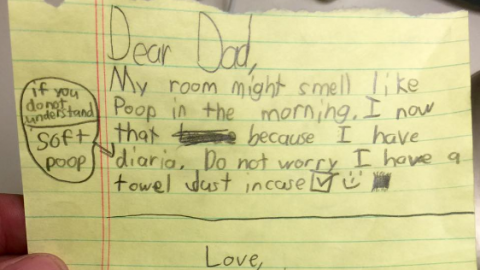 Dear Dad,
My room might smell like
Poop in the morning. I now
that because I have
diaria. Do not worry I have a
towel Just incase
if you
do not
understand
Soft
poop
Love,